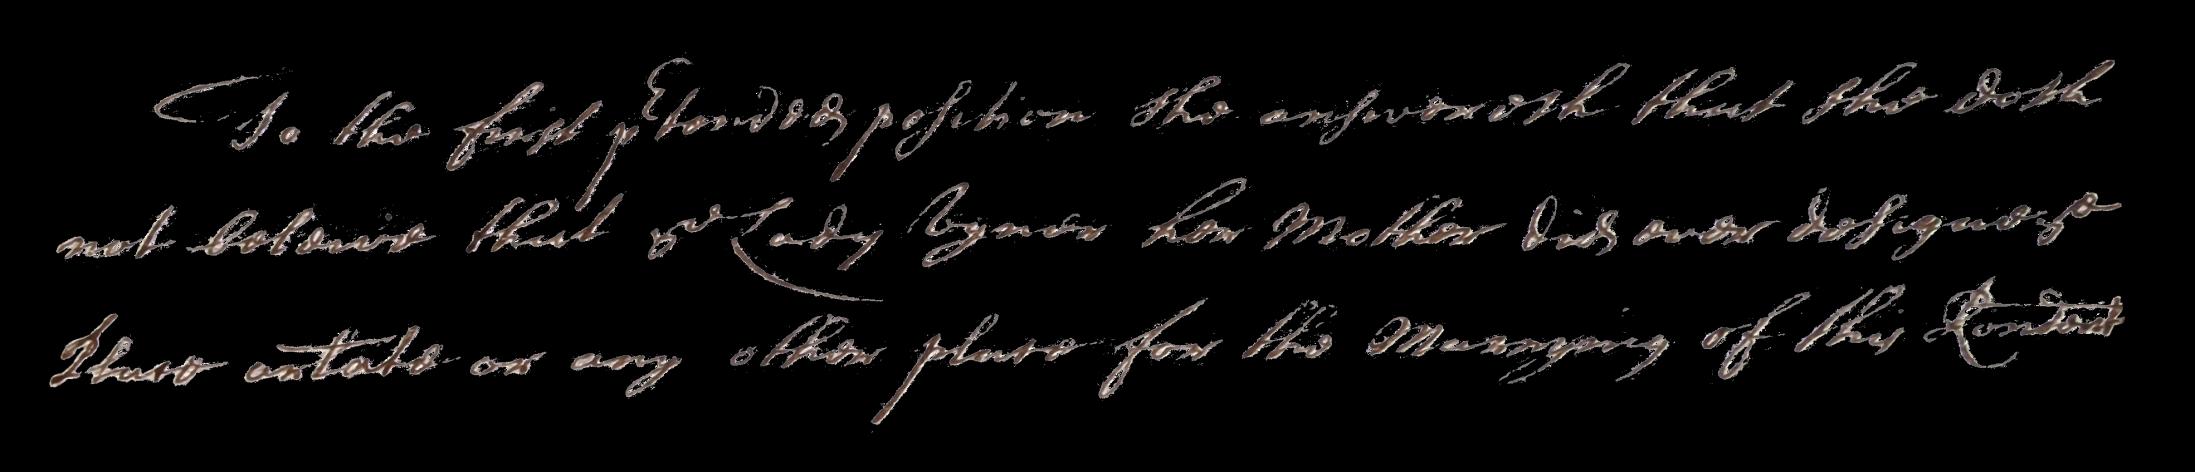 To the first ptended position she answereth that she doth
not beleive that ye Lady Vyner her Mother did ever designe ye
Place or any other place for the Marrying of this